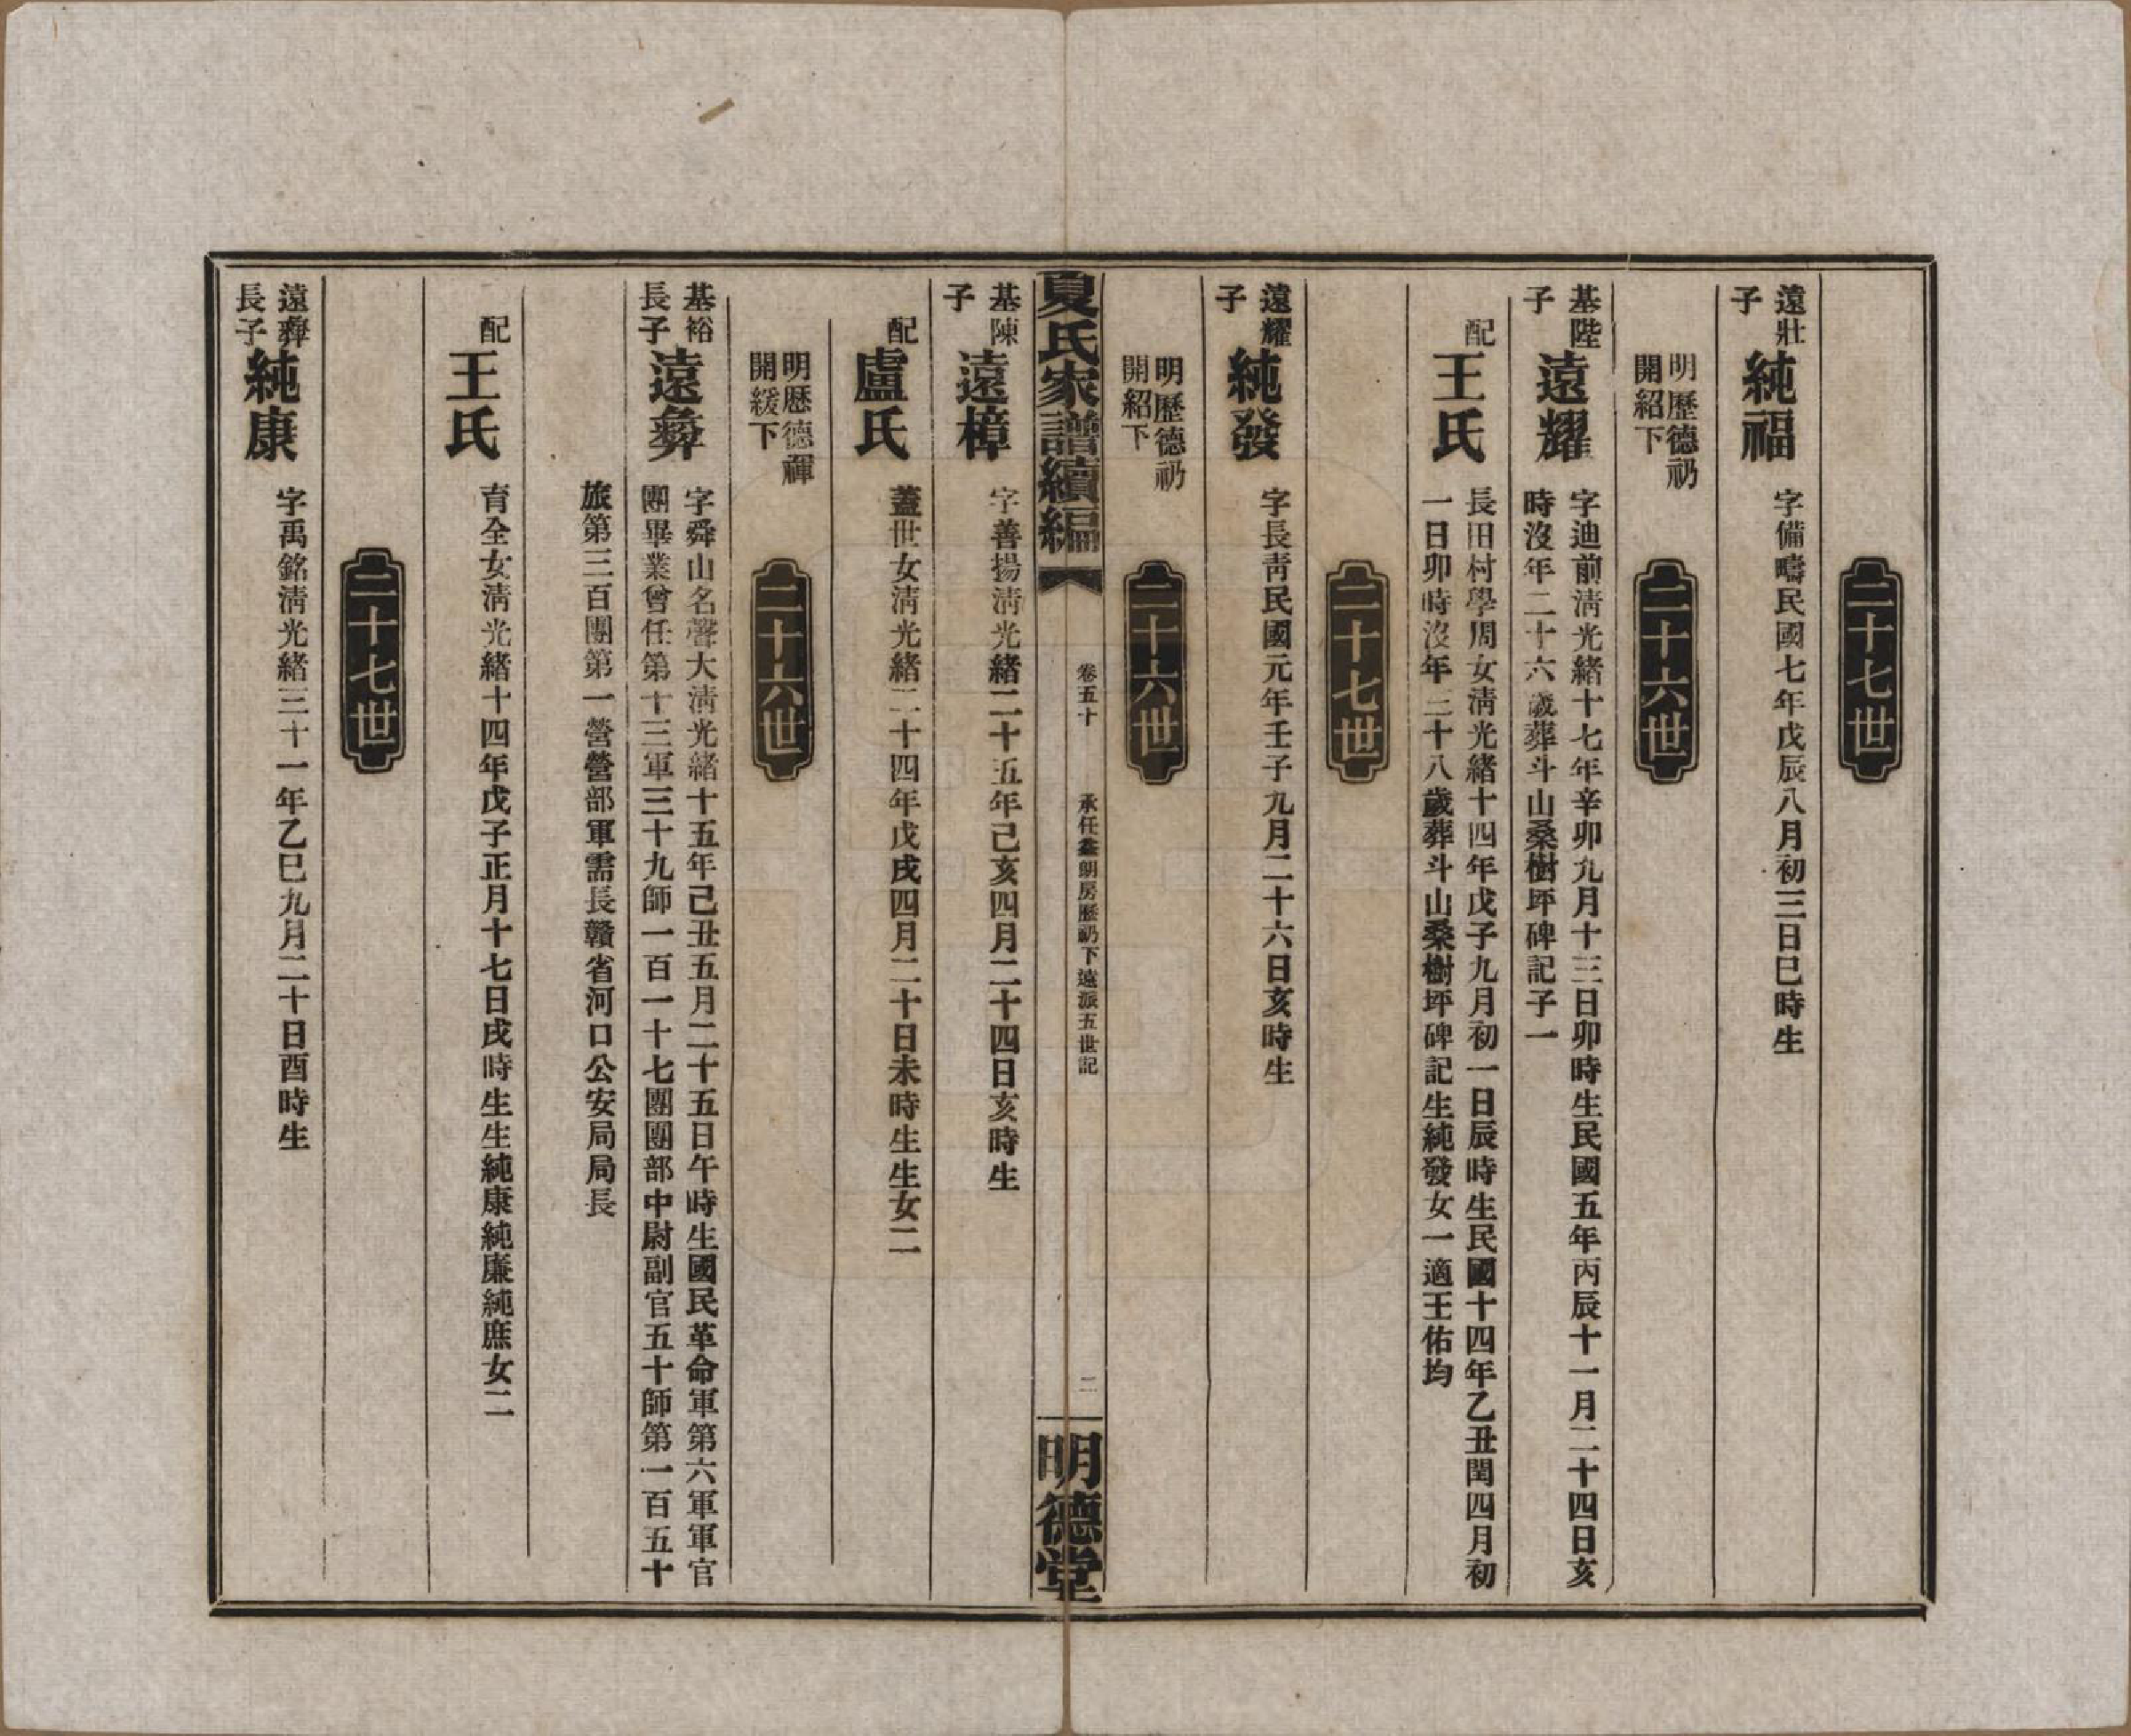 二十七世
遠壯
子
純福
字備疇民國七年戊辰八月初三日巳時生
明歷德礽
開紹下
二十六世
基陛
子
遠耀
字迪前淸光緒十七年辛卯九月十三日卯時生民國五年丙辰十一月二十四日亥
時沒年二十六歲葬斗山桑樹坪碑記子一
配
王氏
長田村學周女淸光緒十四年戊子九月初一日辰時生民國十四年乙丑閏四月初
一日卯時沒年三十八歲葬斗山桑樹坪碑記生純發女一適王佑均
二十七世
遠耀
子
純發
字長靑民國元年壬子九月二十六日亥時生
明歷德礽
開紹下
二十六世
夏氏家譜續編
卷五十
承任鑫朗房歷礽下遠派五世記
二
明德堂
基陳
子
遠樟
字善揚淸光緒二十五年己亥四月二十四日亥時生
配
盧氏
蓋世女淸光緒二十四年戊戌四月二十日未時生生女二
明歷德禪
開緩下
二十六世
基裕
長子
遠彜
字舜山名馨大淸光緒十五年己丑五月二十五日午時生國民革命軍第六軍軍官
團畢業曾任第十三軍三十九師一百一十七團團部中尉副官五十師第一百五十
旅第三百團第一營營部軍需長贛省河口公安局局長
配
王氏
育全女淸光緒十四年戊子正月十七日戌時生生純康純廉純庶女二
二十七世
遠彜
長子
純康
字禹銘淸光緒三十一年乙巳九月二十日酉時生